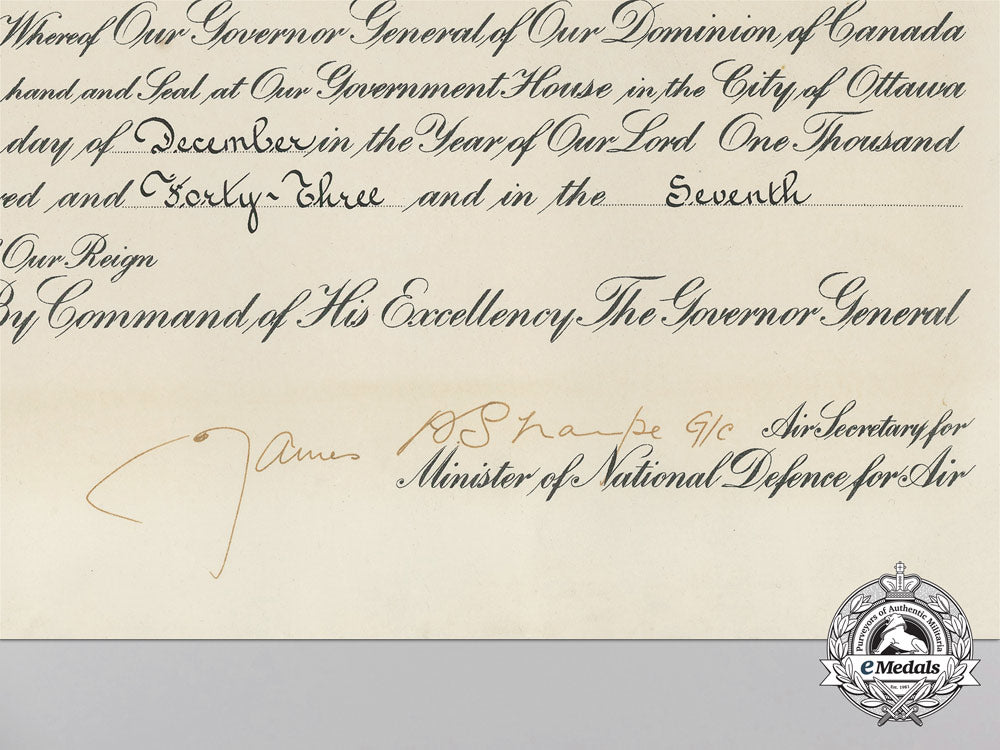 Whereof Our Governor General of Our Dominion of Canada
hand and Seal at Our Government House in the City of Ottawa
day of December in the Year of Our Lord One Thousand
red and Forty-Three and in the Seventh
Our Reign
By Command of His Excellency The Governor General
James A Sharpe G/C Air Secretary for
Minister of National Defence for Air
Purveyors of Authentic Militaria
eMedals
Est. 1967